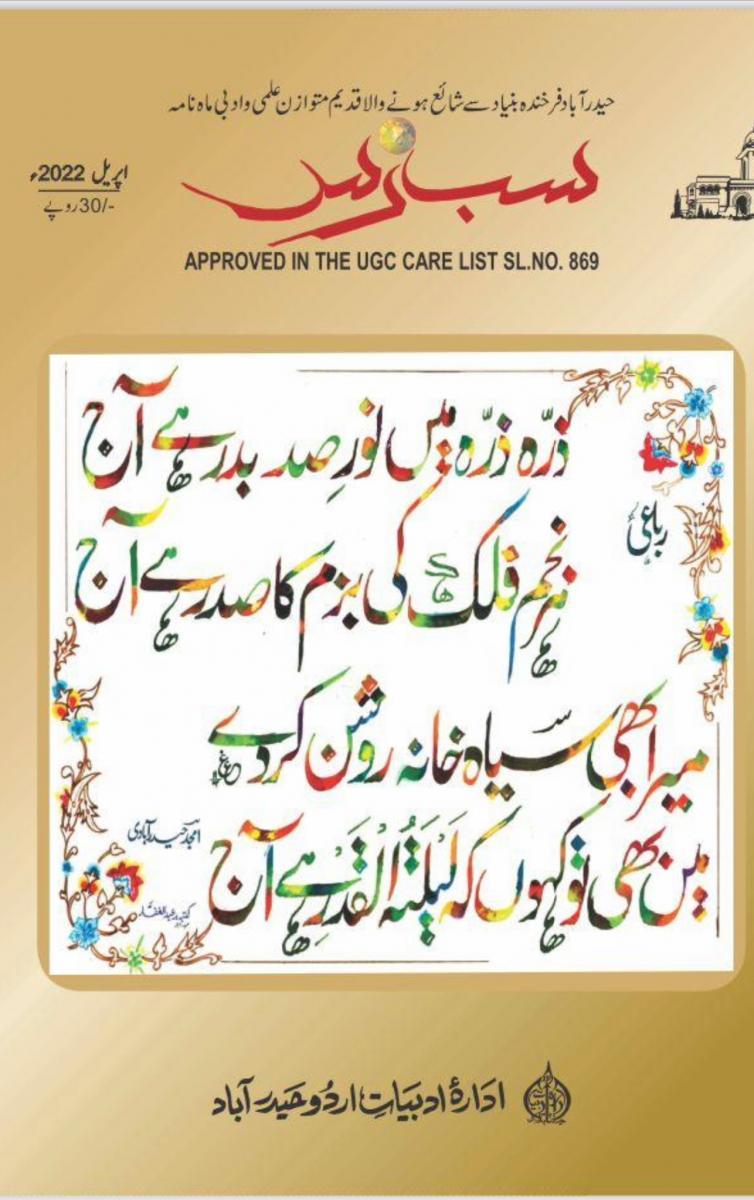 حیدرآباد فرخندہ بنیاد سے شائع ہونے والا قدیم متوازن علمی و ادبی ماہ نامہ
سب رس
اپریل 2022ء
30/- روپے
APPROVED IN THE UGC CARE LIST SL.NO. 869
رباعی
ذرّہ ذرّہ میں نورِ صد بدر ہے آج
ہر نجم فلک کی بزم کا صدر ہے آج
میرا بھی سیاہ خانہ روشن کردے
میں بھی تو کہوں کہ لیلۃ القدر ہے آج
امجد حیدرآبادی
ادارۂ ادبیاتِ اردو حیدرآباد